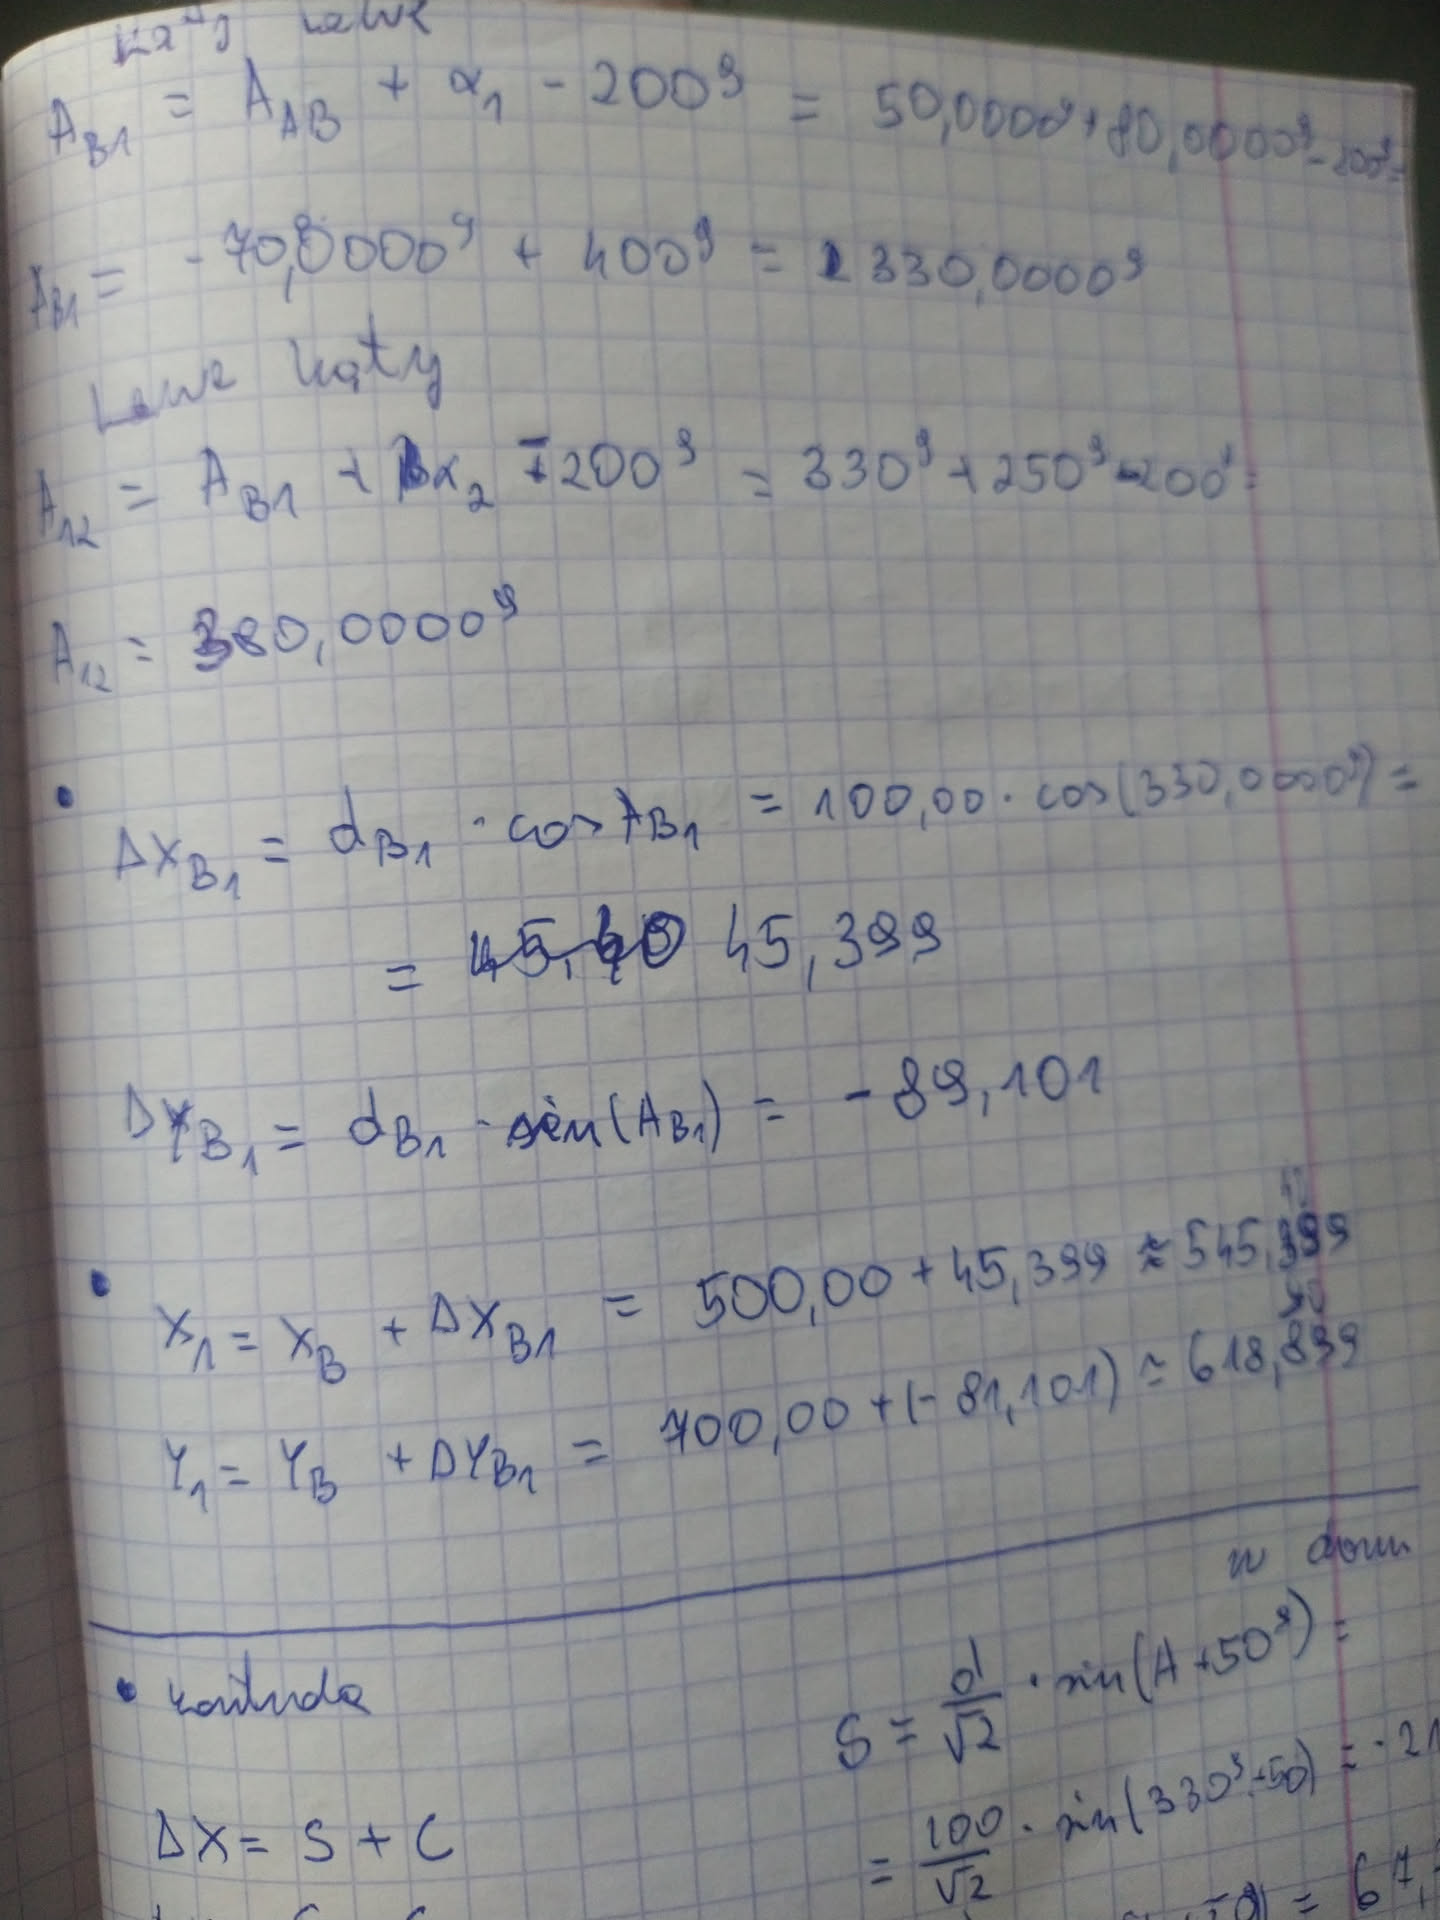 A_B1 = A_AB + α_1 - 200^g = 50,0000^g + 80,0000^g - 200^g =
A_B1 = -70,0000^g + 400^g = 330,0000^g
Lewe kąty
A_12 = A_B1 + α_2 - 200^g = 330^g + 250^g - 200^g =
A_12 = 380,0000^g
• ΔX_B1 = d_B1 · cos A_B1 = 100,00 · cos(330,0000^g) =
= 45,399
ΔY_B1 = d_B1 · sin(A_B1) = -89,101
• X_1 = X_B + ΔX_B1 = 500,00 + 45,399 ≈ 545,399
Y_1 = Y_B + ΔY_B1 = 700,00 + (-81,101) = 618,899
w dom
• kontrola
S = d/√2 · sin(A + 50^g) =
ΔX = S + C
= 100/√2 · sin(330^g + 50) = -21
= 67,